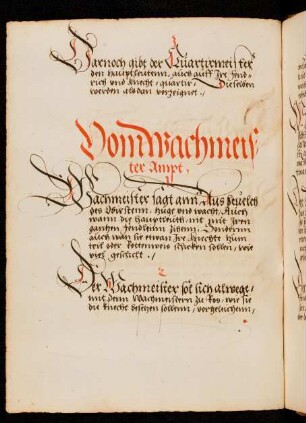 Darnoch gibt der Quartirmeister
den hauptleuten, auch auff Ire fend-
rich und knecht, quartir, Dieselben
werden alsdan verzeignet ./.
Vom Wachmeis
ter Ampt,
1
Wachmeister sagt ann, Aus beuelch
des Obristenn, huge und wacht, Auch
wann die hauptleuth, mit Iren
gantzen fendlein Ziehenn, Sondernn
auch wan sie etwan Ire knechte zum
teil oder Rottenweis schicken sollen, wie
vill geschicht ./
2
Der Wachmeister sol sich alwege,
mit denn Wachmeistern zu Ros, wie sie
die knecht besehen sollenn, vergleichenn,